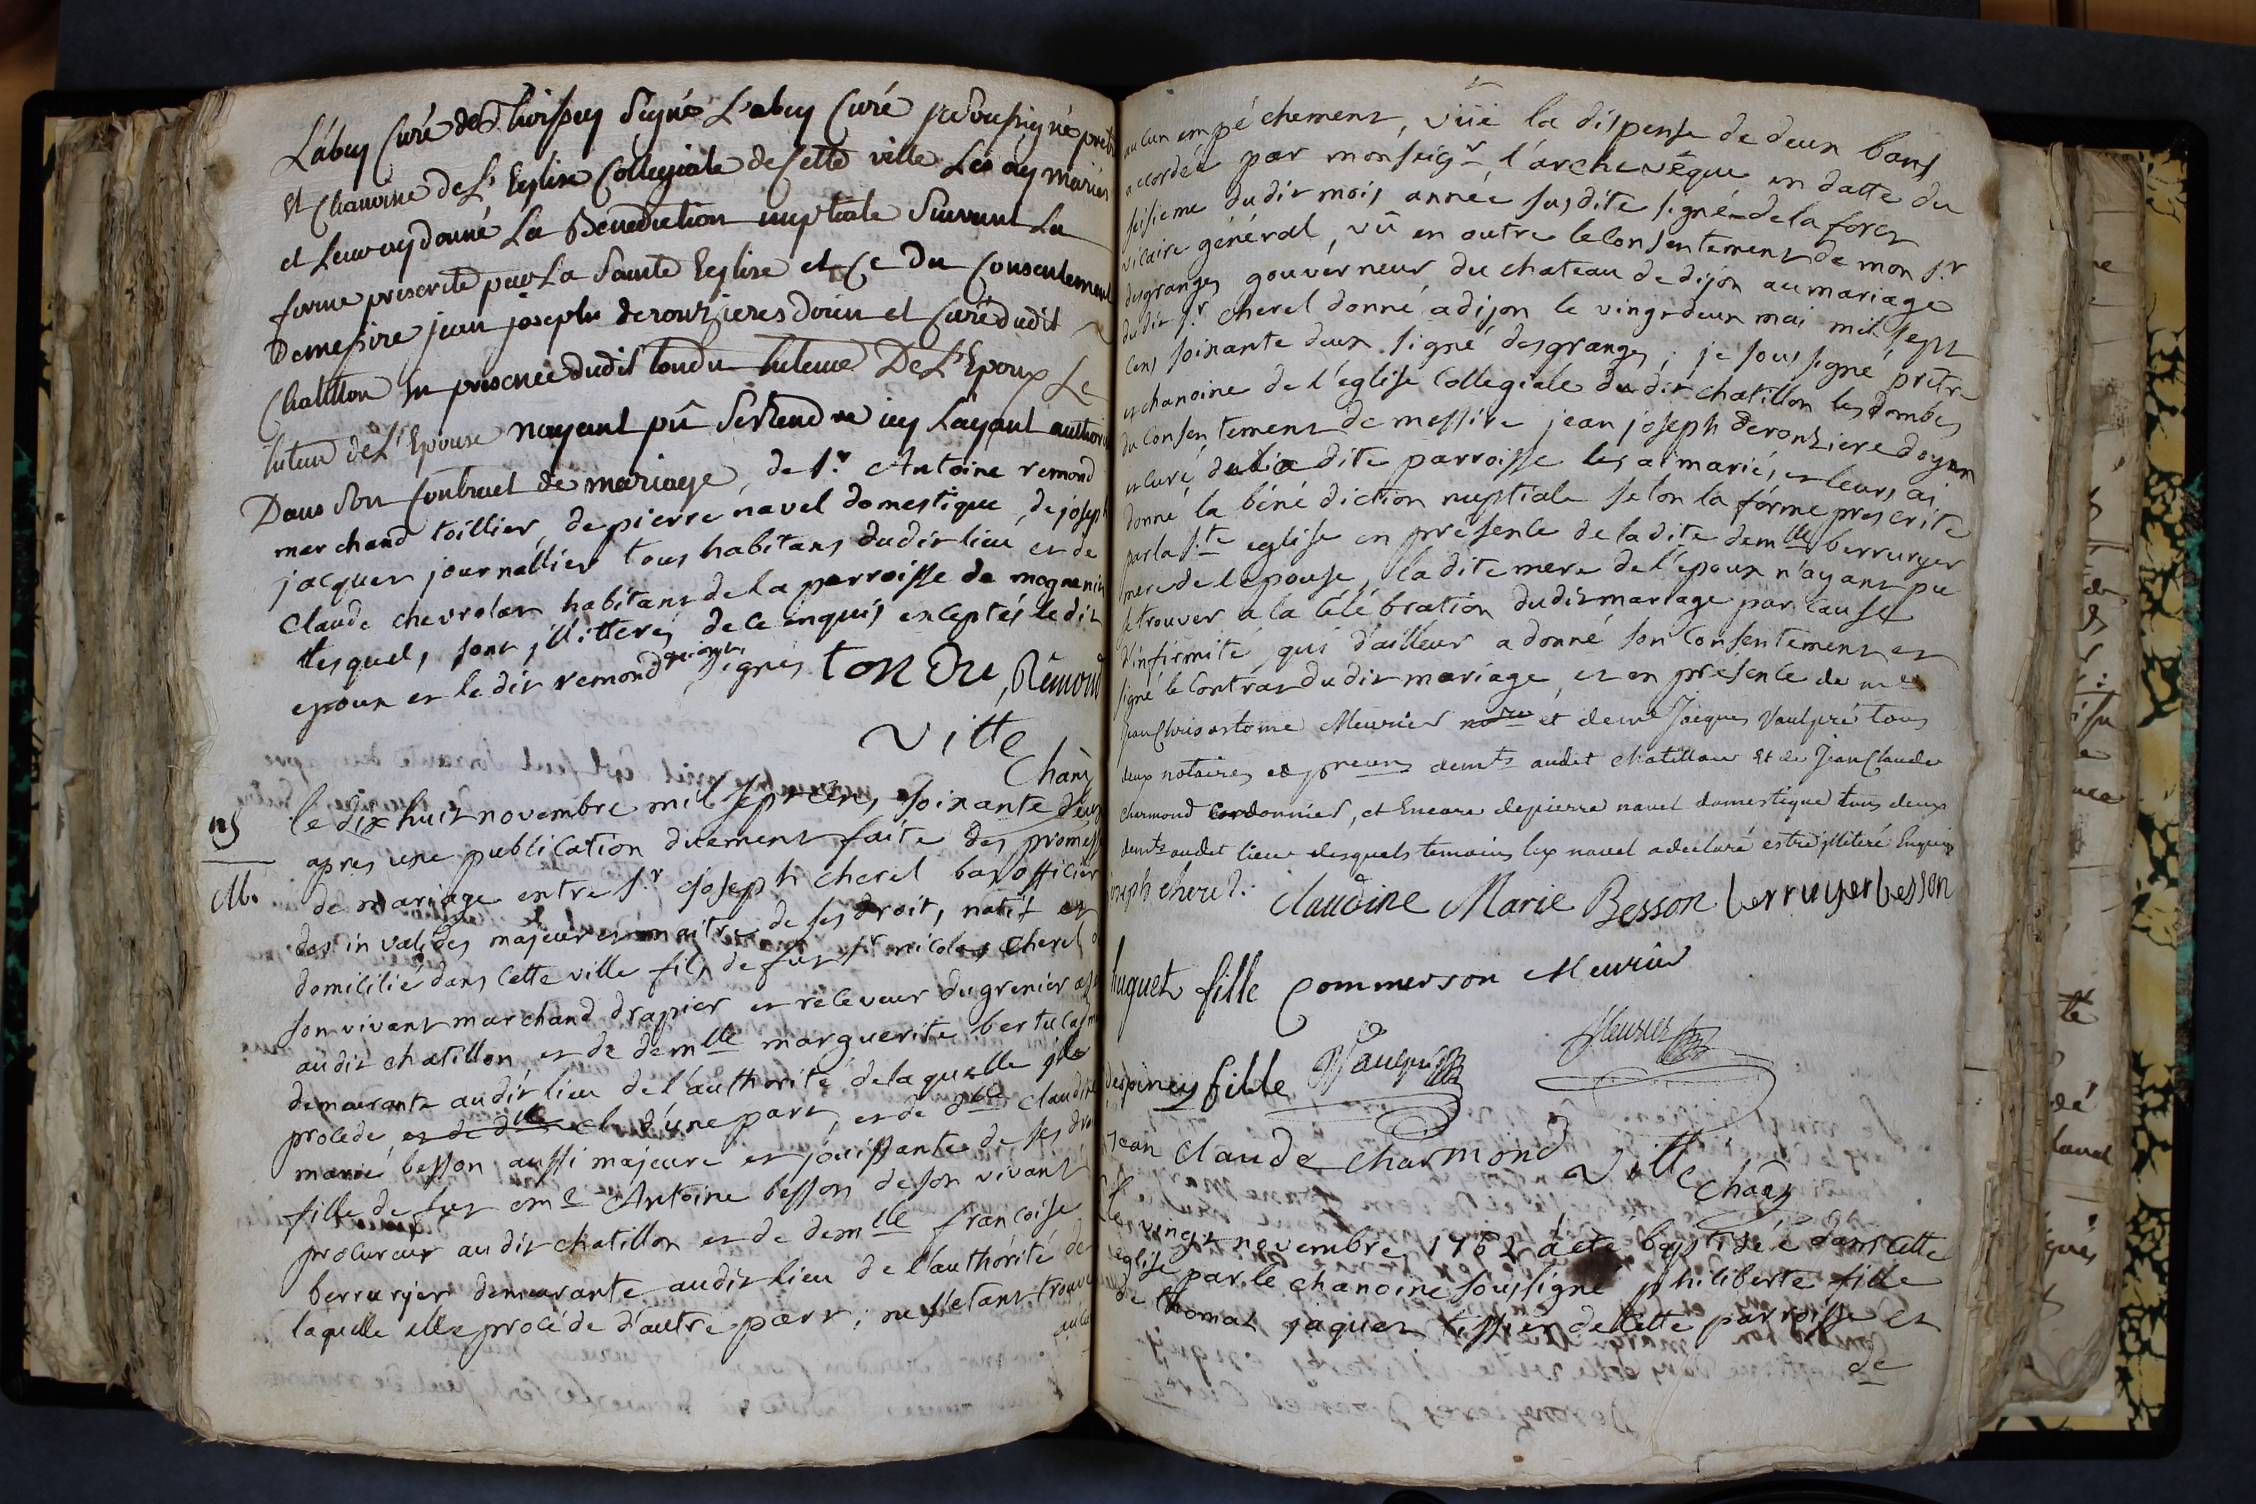 Labuy Curé de Thoissey Signé Labuy Curé je soussigné pretre
et Chanoine de L'Eglise Collegiale de Cette ville Les ay mariés
et Leur ay donné La Benediction nuptiale Suivant La
forme prescrite par La Sainte Eglise et Ce Du Consentement
De messire jean joseph derouzieres doien et Curé dudit
Chatillon En presence dudit tondu tuteur De L'Epoux Le
tuteur de L'Epouse nayant pû Se Rendre icy Layant authorisé
Dans Son Contract de mariage, de s.r Antoine remond
marchand toillier, de pierre navel domestique, de joseph
jacquet journallier tous habitans dudit lieu et de
Claude chevrolat habitant de la parroisse de mogneneins
lesquels sont illitterés de ce enquis exceptés ledit
epoux et ledit remond qui ont signés. tondu, Rémond
Ville
Chan
le dix huit novembre mil sept cens soixante deux
apres une publication duement faite des promesses
M.
de mariage entre s.r joseph cherel bas officier
des invalides majeur et maitre de ses droit, natif et
domicilié dans cette ville fils de fut s.r nicolas cherel
son vivant marchand drapier et receveur du grenier a sel
audit chatillon et de demlle marguerite
demeurante audit lieu de l'authorité de laquelle il
procede et de dlle cl d'une part, et de dlle claudine
marie besson aussi majeure et jouissante de ses droits
fille de fut me Antoine besson de son vivant
procureur audit chatillon et de demlle françoise
berruyer demeurante audit lieu de l'authorité de
laquelle elle procéde d'autre part; ne s'etant trouvé
aucun
aucun empéchement, vûe la dispense de deux bans
accordée par monseigr l'archevêque en datte du
seisieme dudit mois année susdite signé de la forest
vicaire général, vû en outre le consentement de mon s.r
desgranges gouverneur du chateau de dijon au mariage
dudit s.r cherel donné a dijon le vingt deux mai mil sept
cens soixante deux signé desgranges; je soussigné prêtre
et chanoine de l'eglise collegiale dudit chatillon les dombes
du consentement de messire jean joseph derouziere doyen
et curé de la dite parroisse les ai mariés et leurs ai
donné la bénédiction nuptiale selon la forme prescrite
par la s.te eglise en présence de ladite demlle berruryer
mere de l'epouse, ladite mere de l'epoux n'ayant pu
se trouver a la célébration dudit mariage par cause
d'infirmité, qui d'ailleur a donné son consentement et
signé le contrat dudit mariage, et en presence de me
Jean Chrisostome Meurier et de me Jacques Vaulpré tous
deux notaires et demts audit chatillon Et de Jean Claude
charmond cordonnier, et Encore de pierre navel domestique tous deux
demts audit lieu desquels temoins led navel a declaré estre illiteré Enquis
joseph cherel. Claudine Marie Besson berruyer besson
huguet fille Commerson Meurier
despiney fille Vaulpré Meurier
Jean Claude Charmond Ville Chan
le vingt novembre 1762 a été baptisée dans cette
eglise par le chanoine soussigné philiberte fille
de thomas jaquet tissier de cette parroisse et
de